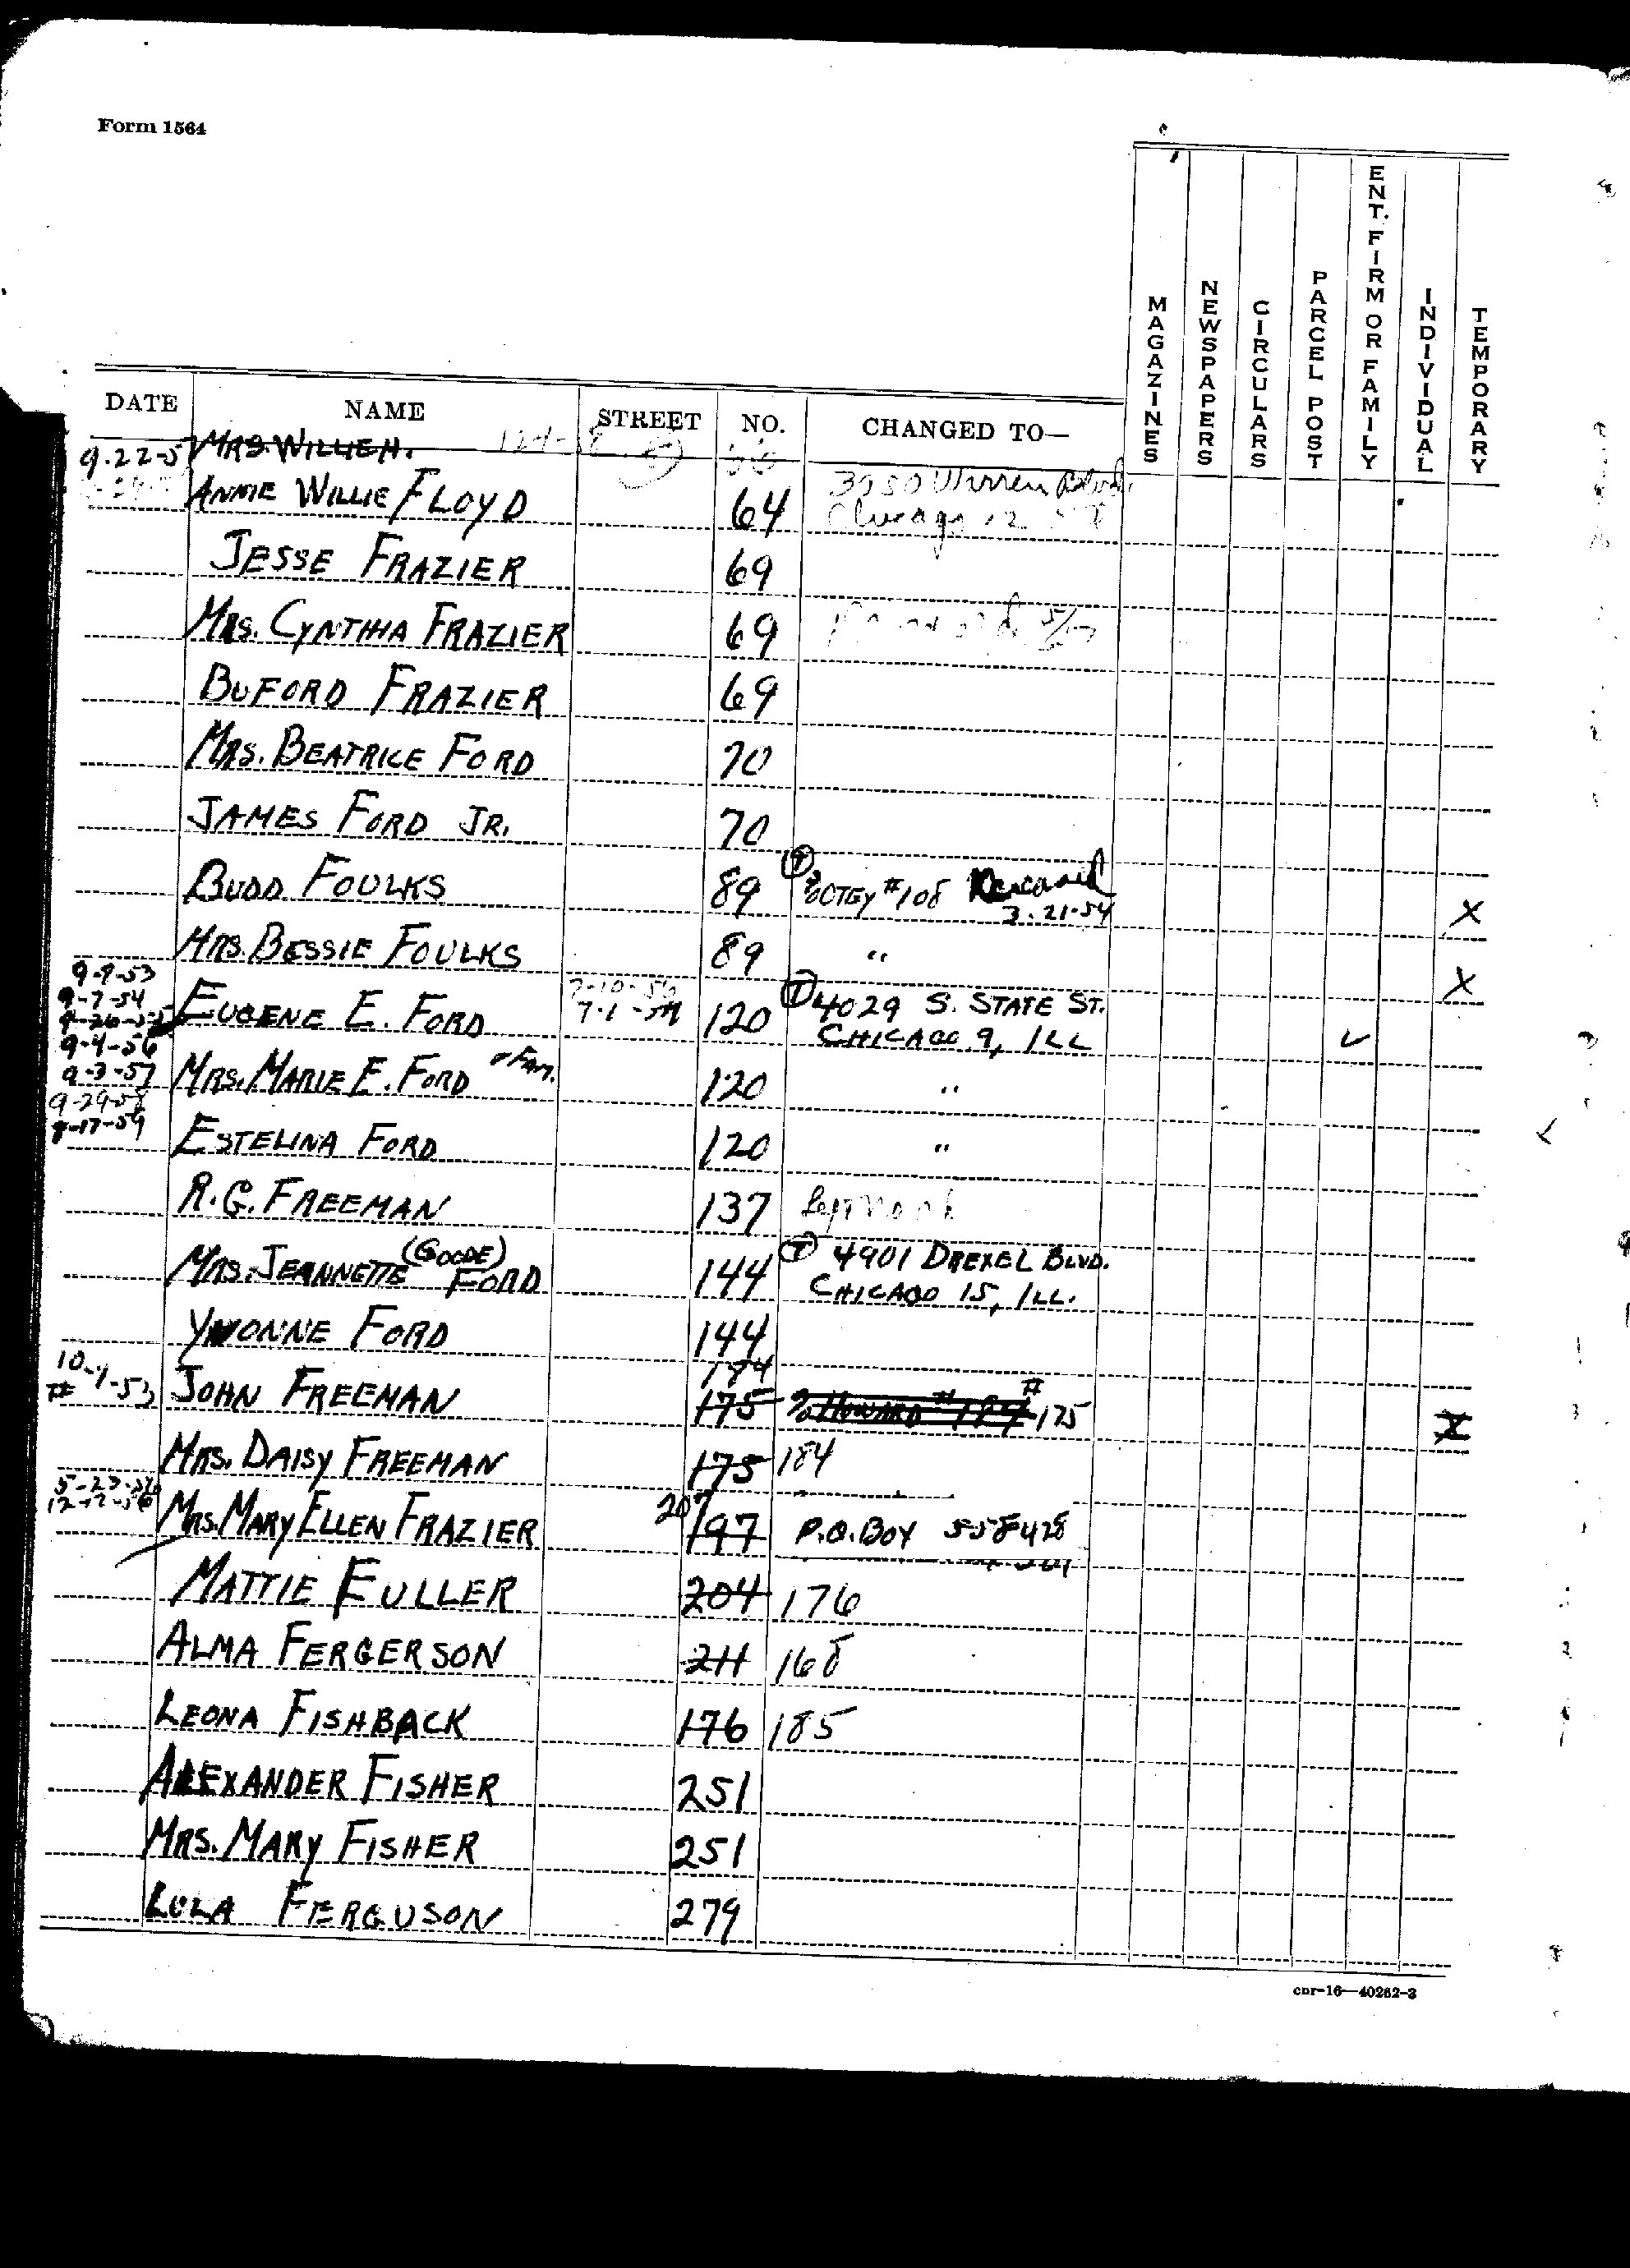 Form 1564
DATE NAME STREET NO. CHANGED TO— MAGAZINES NEWSPAPERS CIRCULARS PARCEL POST ENT. FIRM OR FAMILY INDIVIDUAL TEMPORARY
9-22-5 MRS. WILLIE H.
ANNIE WILLIE FLOYD 64 3050 Warren Blvd. Chicago 12
JESSE FRAZIER 69
MRS. CYNTHIA FRAZIER 69
BUFORD FRAZIER 69
MRS. BEATRICE FORD 70
JAMES FORD JR. 70
BUDD FOULKS 89 T % OCTGY #108 Deceased 3-21-54 X
MRS. BESSIE FOULKS 89 " X
9-9-53
9-7-54
9-26-55 EUGENE E. FORD 7-10-56 7-1-59 120 T 4029 S. STATE ST.
9-4-56 CHICAGO 9, ILL ✓
9-3-57 MRS. MARIE E. FORD & FAM. 120 "
9-29-58
8-17-59 ESTELINA FORD 120 "
R.G. FREEMAN 137
MRS. JEANNETTE (GOODE) FORD 144 T 4901 DREXEL BLVD.
CHICAGO 15, ILL.
YVONNE FORD 144
184
10-9-53 JOHN FREEMAN 175 % HOWARD #184 #175 X
MRS. DAISY FREEMAN 175 184
5-23-56
12-12-56 MRS. MARY ELLEN FRAZIER 207 197 P.O. BOX 558 428
MATTIE FULLER 204 176
ALMA FERGERSON 211 168
LEONA FISHBACK 176 185
ALEXANDER FISHER 251
MRS. MARY FISHER 251
LULA FERGUSON 279
cnr-16—40262-3